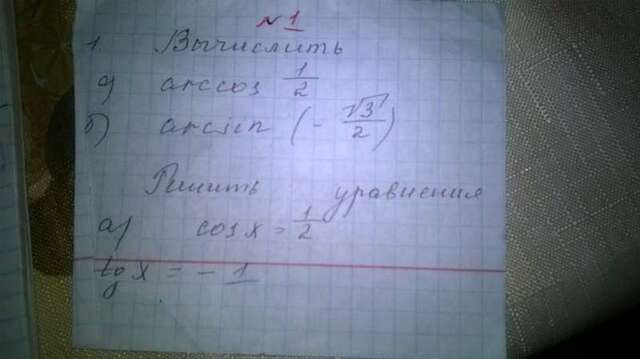 № 1
1. Вычислить
а) arccos 1/2
б) arcsin (- √3/2)
Решить уравнения
а) cos x = 1/2
tg x = - 1